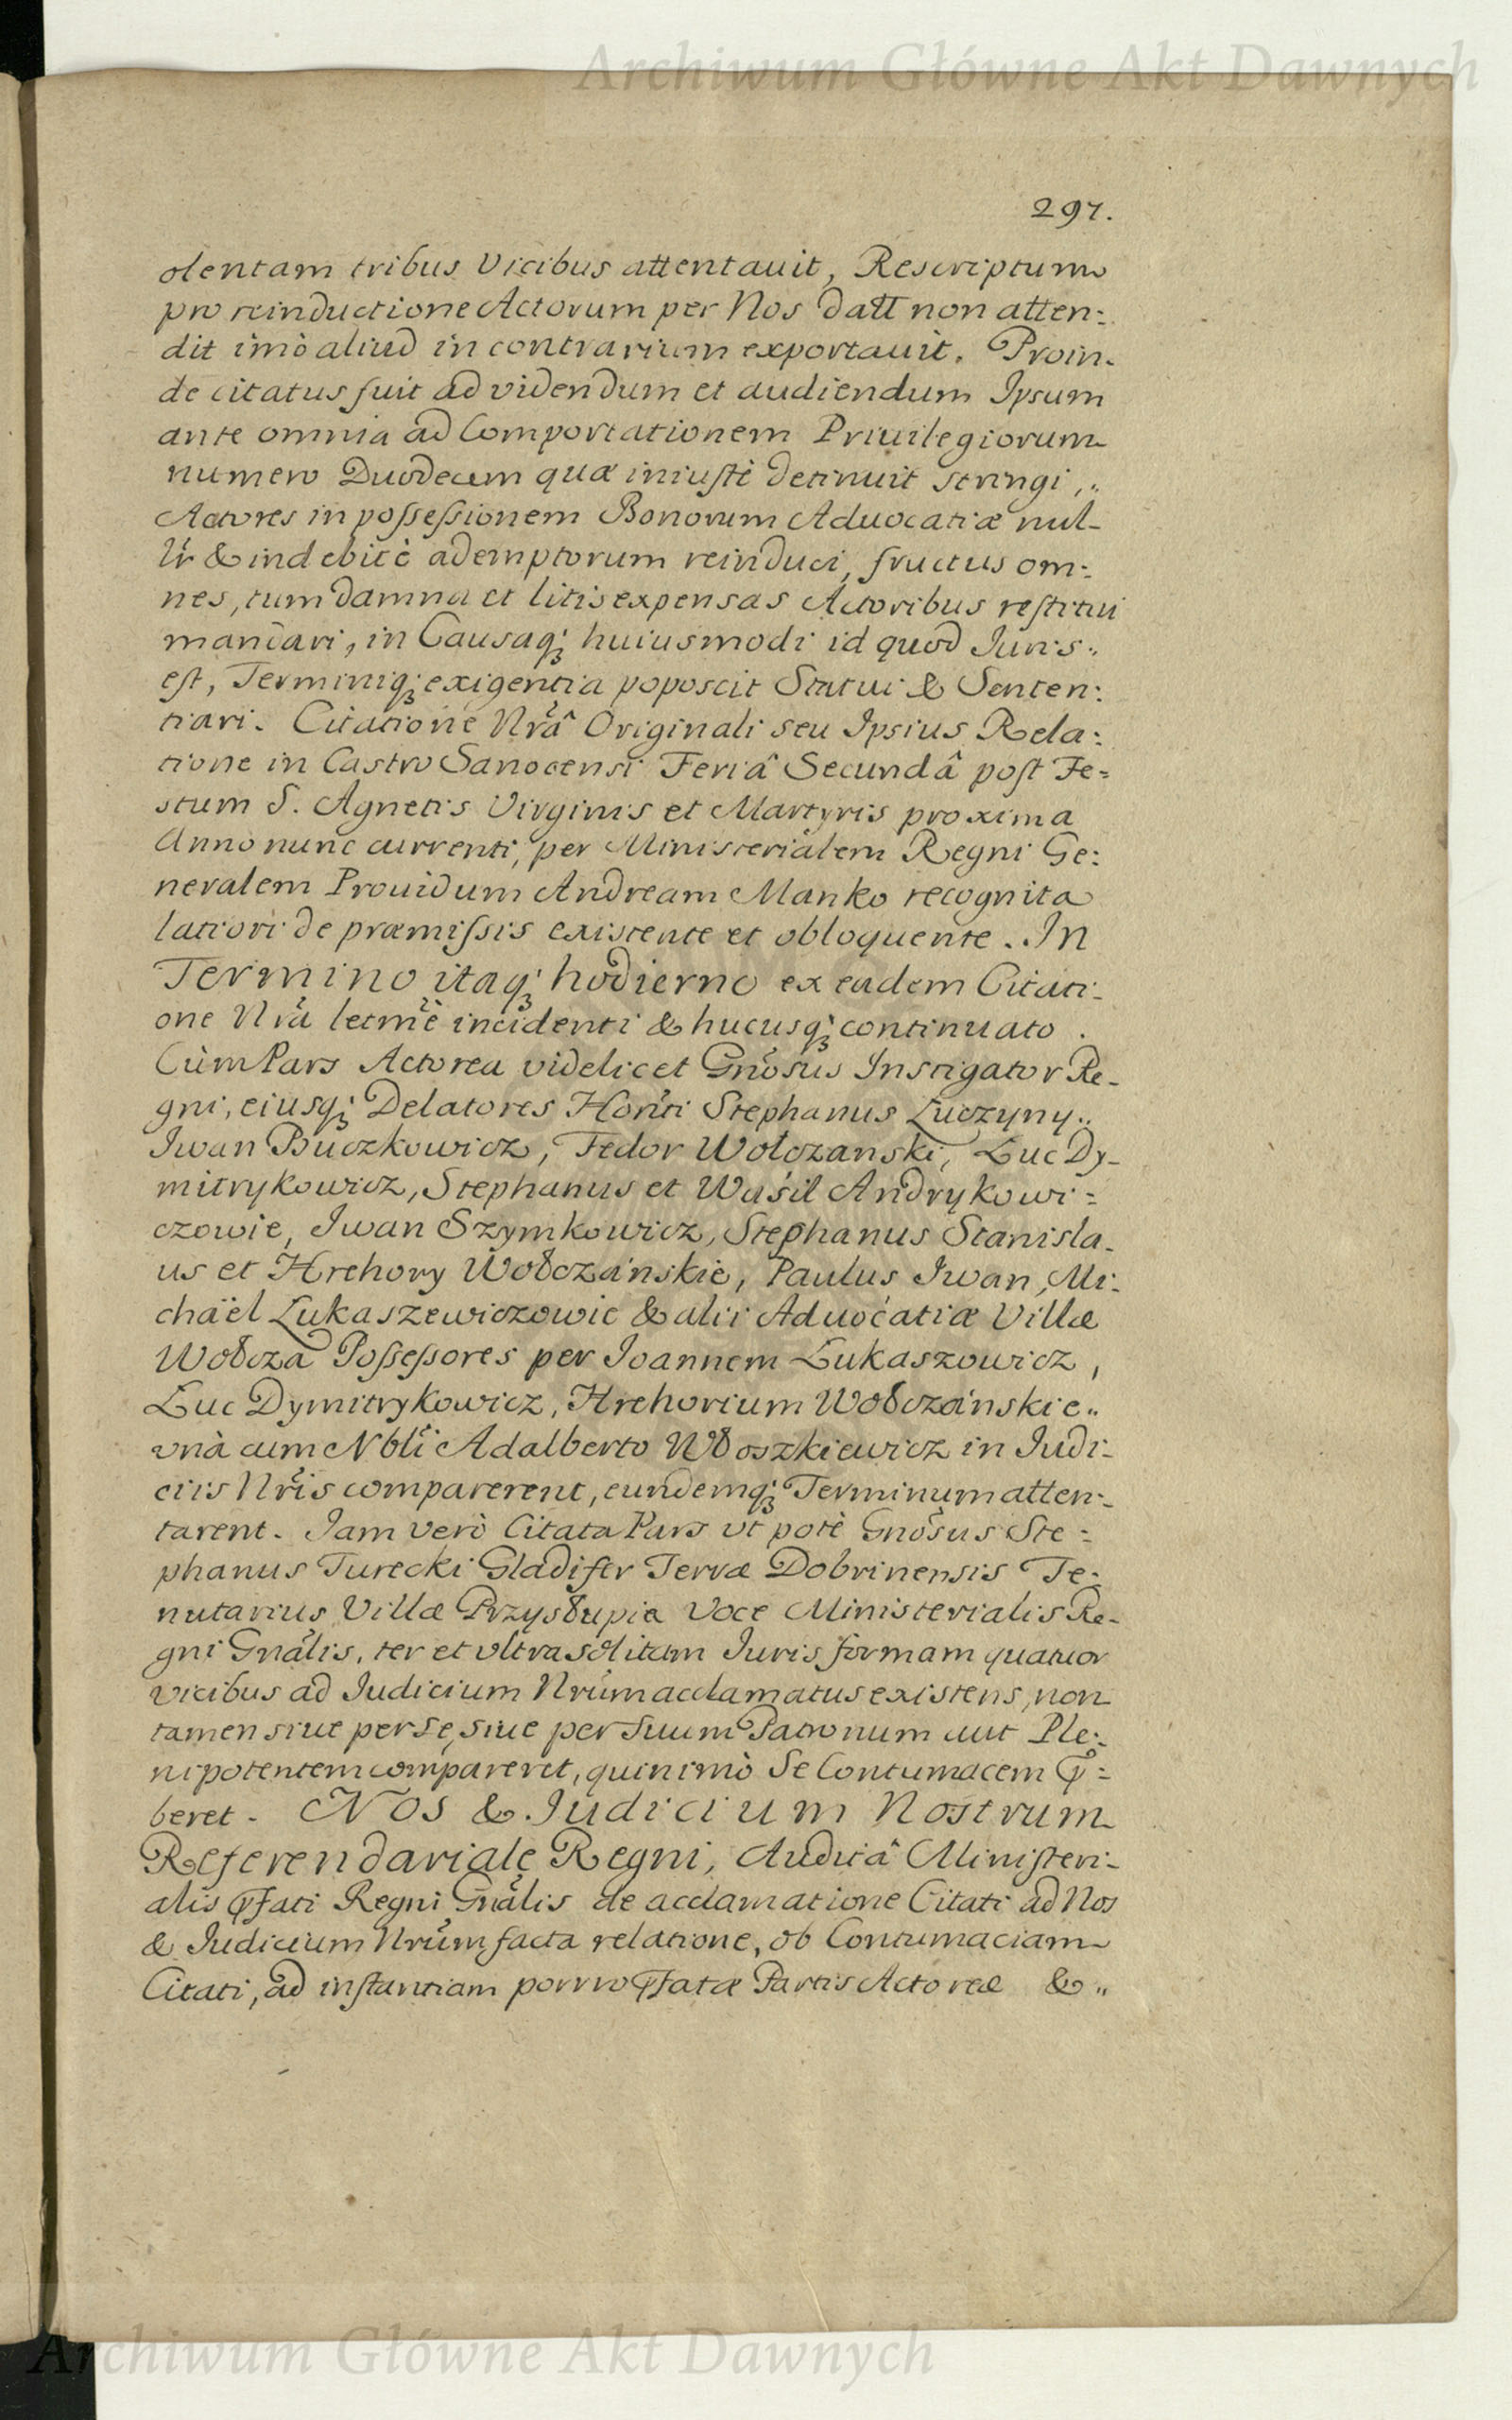 Archiwum Główne Akt Dawnych
297.
olentam tribus Vicibus attentauit, Rescriptum
pro reinductione Actorum per Nos datt non atten:
dit imò aliud in contrarium exportauit. Proin-
de citatus fuit ad videndum et audiendum Ipsum
ante omnia ad Comportationem Priuilegiorum
numero Duodecim quæ iniustè detinuit stringi,
Actores in possessionem Bonorum Aduocatiæ nul-
lr & indebitè ademptorum reinduci, fructus om:
nes, tum damna et litis expensas Actoribus restitui
mandari, in Causaq; huiusmodi id quod Iuris
est, Terminiq; exigentia poposcit Statui & Senten:
tiari. Citatione Nrâ Originali seu Ipsius Rela:
tione in Castro Sanocensi Feriâ Secundâ post Fe=
stum S. Agnetis Virginis et Martyris proxima
Anno nunc currenti, per Ministerialem Regni Ge:
neralem Prouidum Andream Manko recognita
latiori de præmissis existente et obloquente. In
Termino itaq; hodierno ex eadem Citati-
one Nrâ letmè incidenti & hucusq; continuato.
Cùm Pars Actorea videlicet Gnosus Instigator Re-
gni, eiusq; Delatores Honti Stephanus Łuczyny
Iwan Buczkowicz, Fedor Wołczanski, Łuc Dy-
mitrykowicz, Stephanus et Waśil Andrykowi=
czowie, Iwan Szymkowicz, Stephanus Stanisla-
us et Hrehory Wołczánskie, Paulus Iwan, Mi-
chaël Łukaszewiczowie & alii Aduocatiæ Villæ
Wołcza Possessores per Ioannem Łukaszowicz,
Łuc Dymitrykowicz, Hrehorium Wołczánskie
vnà cum Nbli Adalberto Włoszkiewicz in Iudi-
ciis Nris comparerent, eundemq; Terminum atten:
tarent. Iam verò Citata Pars vt potè Gnosus Ste=
phanus Turecki Gladifer Terræ Dobrinensis Te:
nutarius Villæ Przysłupia Voce Ministerialis Re-
gni Gnalis, ter et vltra solitam Iuris formam quatuor
vicibus ad Iudicium Nrum acclamatus existens, non
tamen siue per se, siue per Suum Patronum aut Ple:
nipotentem compareret, quinimò Se Contumacem ꝓ=
beret. Nos & Iudicium Nostrum
Referendariale Regni, Auditâ Ministeri-
alis ꝓfati Regni Gnalis de acclamatione Citati ad Nos
& Iudicium Nrum facta relatione, ob Contumaciam
Citati, ad instantiam porro ꝓfatæ Partis Actoreæ &
Archiwum Główne Akt Dawnych